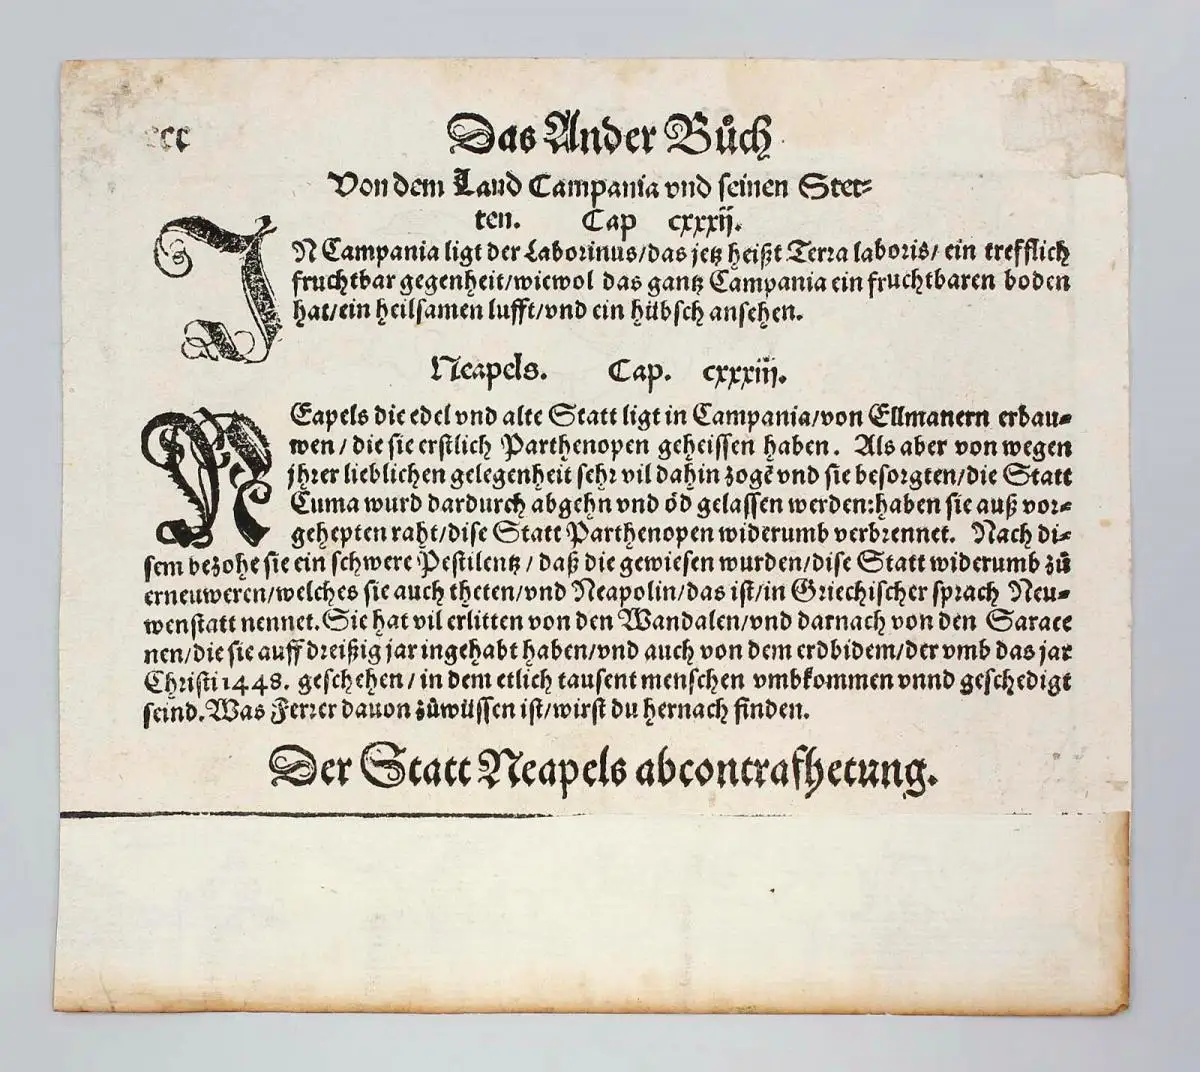 ccc
Das Ander Bůch
Von dem Land Campania vnd seinen Stet⸗
ten. Cap cxxxij.
IN Campania ligt der Laborinus/das jetz heißt Terra laboris/ ein trefflich
fruchtbar gegenheit/wiewol das gantz Campania ein fruchtbaren boden
hat/ein heilsamen lufft/vnd ein hübsch ansehen.
Neapels. Cap. cxxxiij.
NEapels die edel vnd alte Statt ligt in Campania/von Ellmanern erbau⸗
wen/die sie erstlich Parthenopen geheissen haben. Als aber von wegen
jhrer lieblichen gelegenheit sehr vil dahin zogẽ vnd sie besorgten/die Statt
Cuma wurd dardurch abgehn vnd öd gelassen werden:haben sie auß vor⸗
gehepten raht/dise Statt Parthenopen widerumb verbrennet. Nach di⸗
sem bezohe sie ein schwere Pestilentz/daß die gewiesen wurden/dise Statt widerumb zů
erneuweren/welches sie auch theten/vnd Neapolin/das ist/in Griechischer sprach Neu⸗
wenstatt nennet. Sie hat vil erlitten von den Wandalen/vnd darnach von den Sarace
nen/die sie auff dreißig jar ingehabt haben/vnd auch von dem erdbidem/der vmb das jar
Christi 1448. geschehen/in dem etlich tausent menschen vmbkommen vnnd geschedigt
seind. Was Ferrer dauon zůwüssen ist/wirst du hernach finden.
Der Statt Neapels abcontrafhetung.